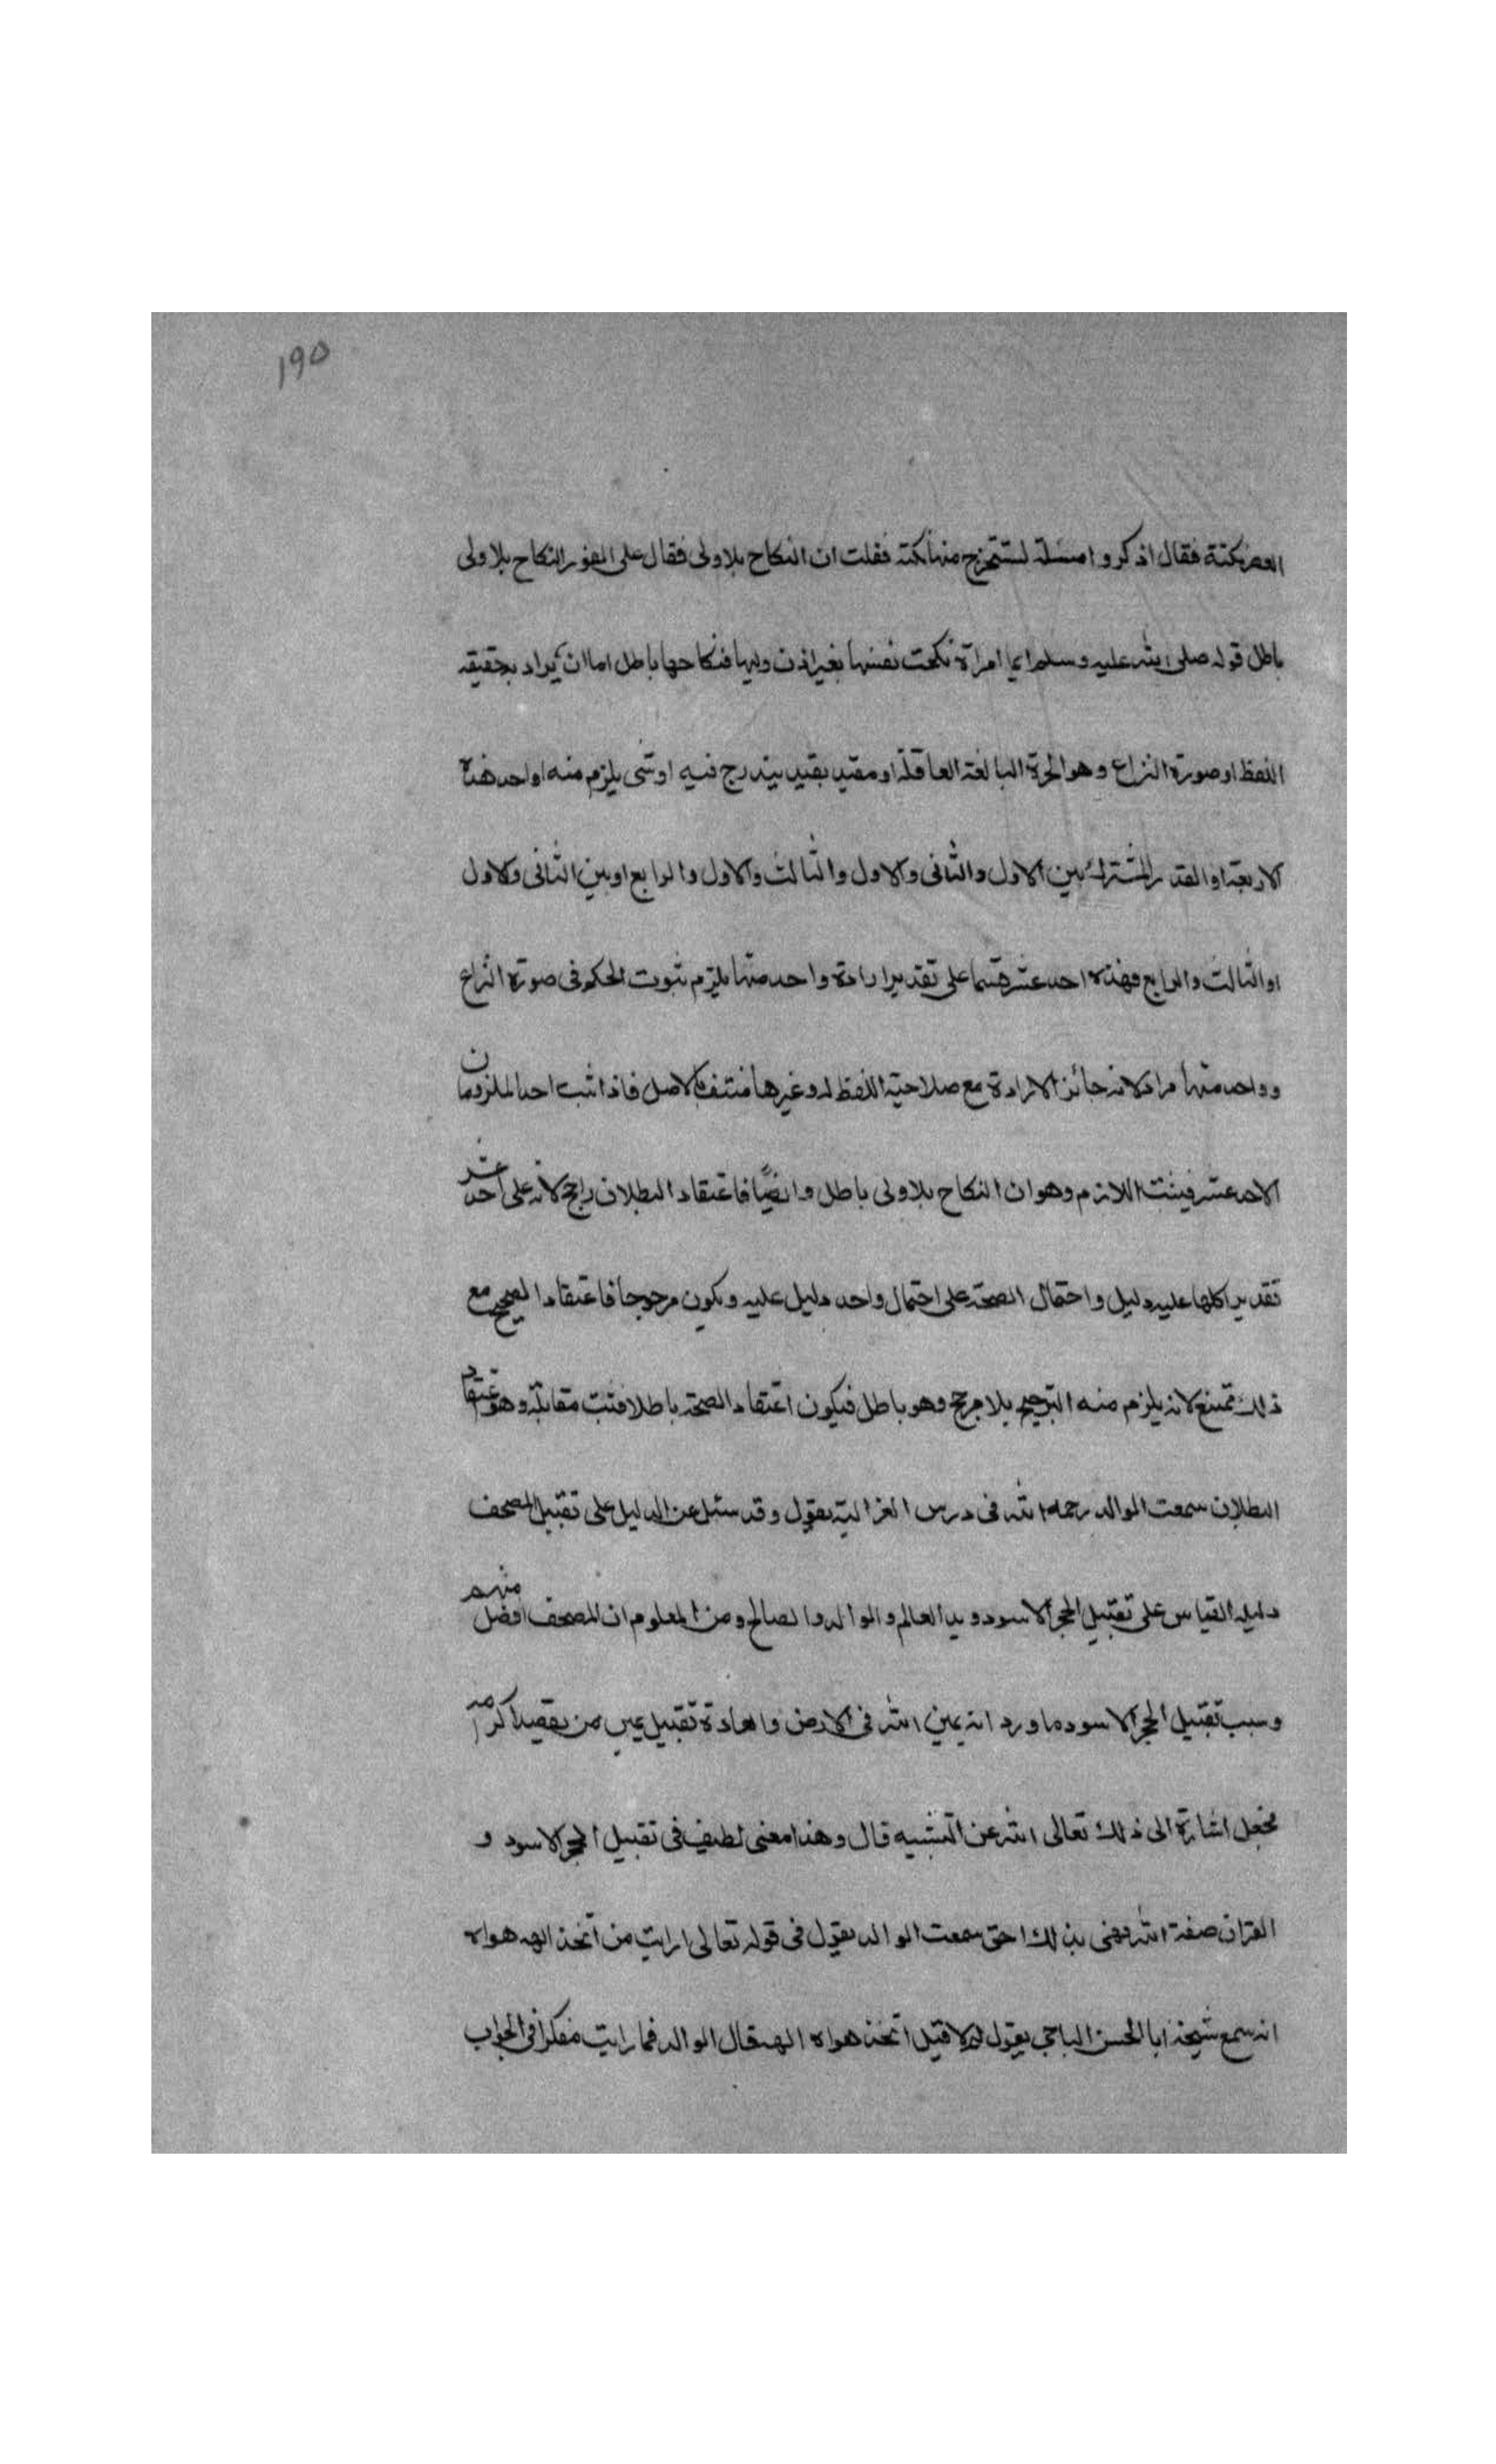 ١٩٥
العصر نكتة فقال اذكروا مسئلة لنستخرج منها نكتة فقلت ان النكاح بلا ولى فقال على الفور النكاح بلا ولى
باطل قوله صلى الله عليه وسلم ايما امراة نكحت نفسها بغير اذن وليها فنكاحها باطل اما ان يراد بحقيقه
اللفظ او صورة النزاع وهو الحرة البالغة العاقلة او مقيد بقيد يندرج فيه او شى يلزم منه او احد هذه
الاربعة او القدر المشترك بين الاول والثانى والاول والثالث والاول والرابع او بين الثانى والاول
او الثالث والرابع فهذه احد عشر قسما على تقدير ارادة واحد منها يلزم ثبوت الحكم فى صورة النزاع
وواحد منها مراد لانه جائز الارادة مع صلاحية اللفظ له وغيرها منتف بالاصل فاذا ثبت احد الملزومان
الاحد عشر فيثبت اللازم وهو ان النكاح بلا ولى باطل وايضًا فاعتقاد البطلان راجح لانه على احد عشر
تقديرا كلها عليه دليل واحتمال الصحة على احتمال واحد دليل عليه ويكون مرجوحا فاعتقاد الصحيح مع
ذلك ممتنع لانه يلزم منه الترجيح بلا مرجح وهو باطل فيكون اعتقاد الصحة باطلا فثبت مقابلة وهو اعتقاد
البطلان سمعت الوالد رحمه الله فى درس الغزالية يقول وقد سئل عن الدليل على تقبيل المصحف
دليله القياس على تقبيل الحجر الاسود ويد العالم والوالد والصالح ومن المعلوم ان المصحف افضل منهم
وسبب تقبيل الحجر الاسود ما ورد انه يمين الله فى الارض والعادة تقبيل يمين من يقصد اكرامه
فجعل اشارة الى ذلك تعالى الله عن التشبيه قال وهذا معنى لطيف فى تقبيل الحجر الاسود و
القران صفة الله فهنى بذلك احق سمعت الوالد يقول فى قوله تعالى ارايت من اتخذ الهه هواه
انه سمع شيخه ابا الحسن الباجى يقول لم لا قيل اتخذ هواه الهه قال الوالد فما رايت مفكرا فى الجواب